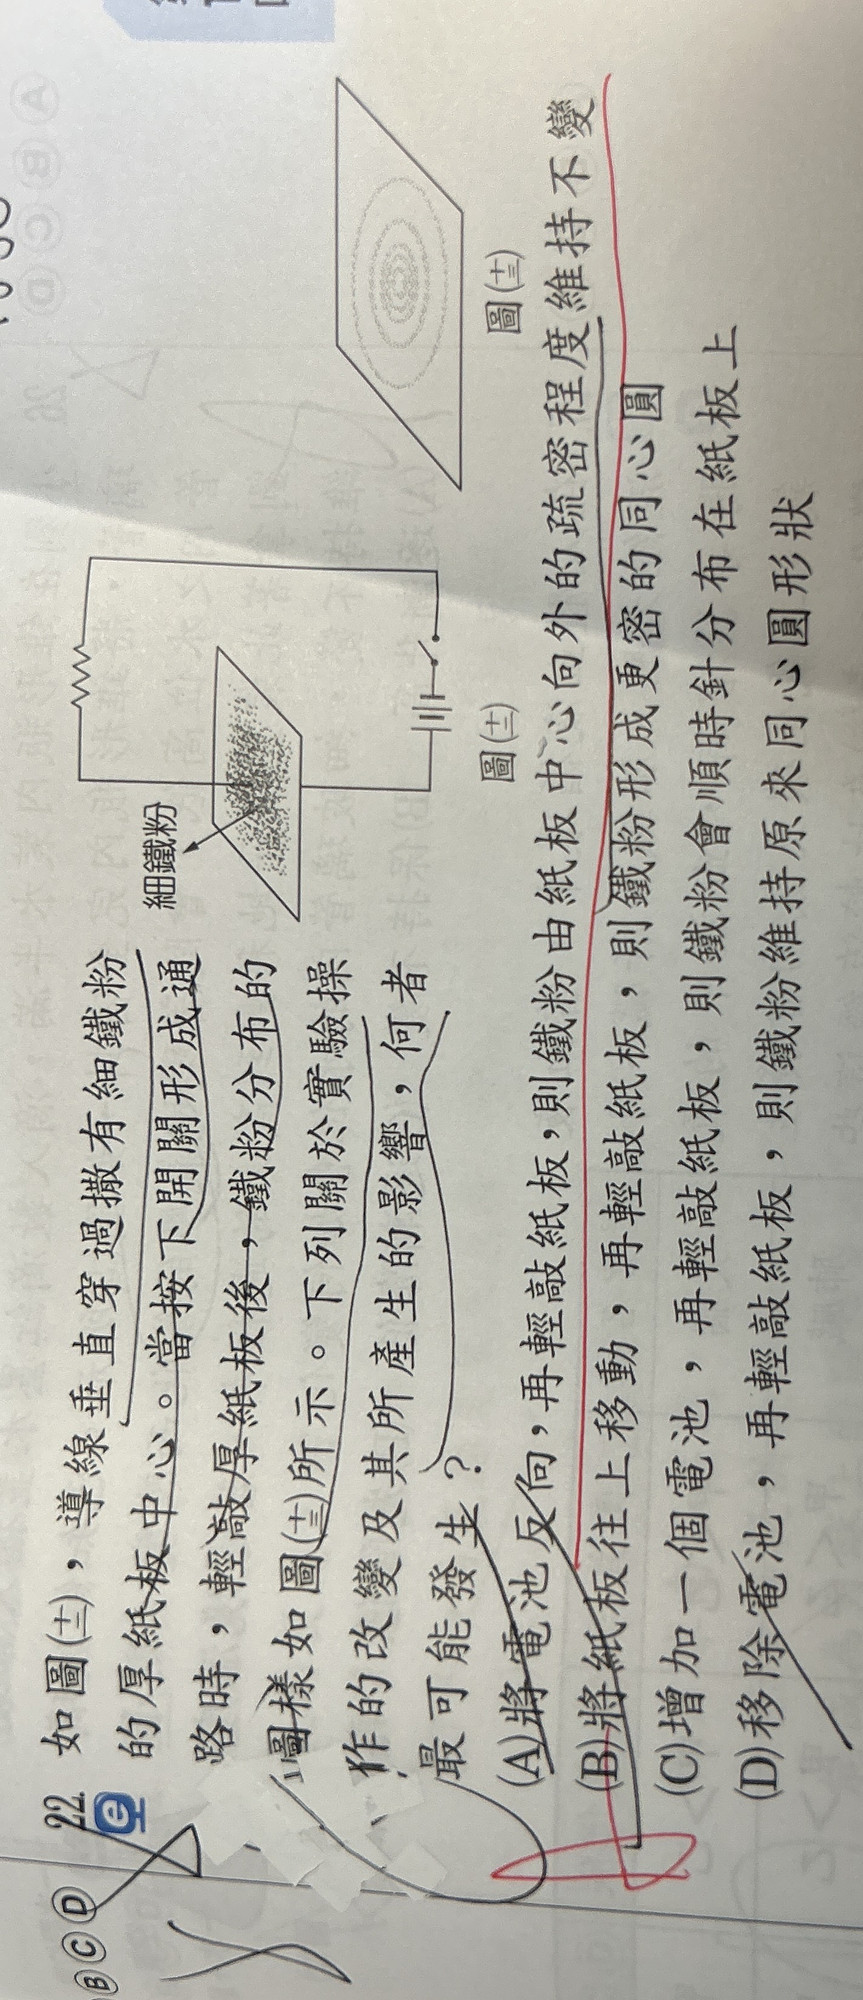 22. 如圖(十二)，導線垂直穿過撒有細鐵粉
的厚紙板中心。當按下開關形成通
路時，輕敲厚紙板後，鐵粉分布的
圖樣如圖(十三)所示。下列關於實驗操
作的改變及其所產生的影響，何者
最可能發生？
細鐵粉
圖(十二)
圖(十三)
(A)將電池反向，再輕敲紙板，則鐵粉由紙板中心向外的疏密程度維持不變
(B)將紙板往上移動，再輕敲紙板，則鐵粉形成更密的同心圓
(C)增加一個電池，再輕敲紙板，則鐵粉會順時針分布在紙板上
(D)移除電池，再輕敲紙板，則鐵粉維持原來同心圓形狀
B C D